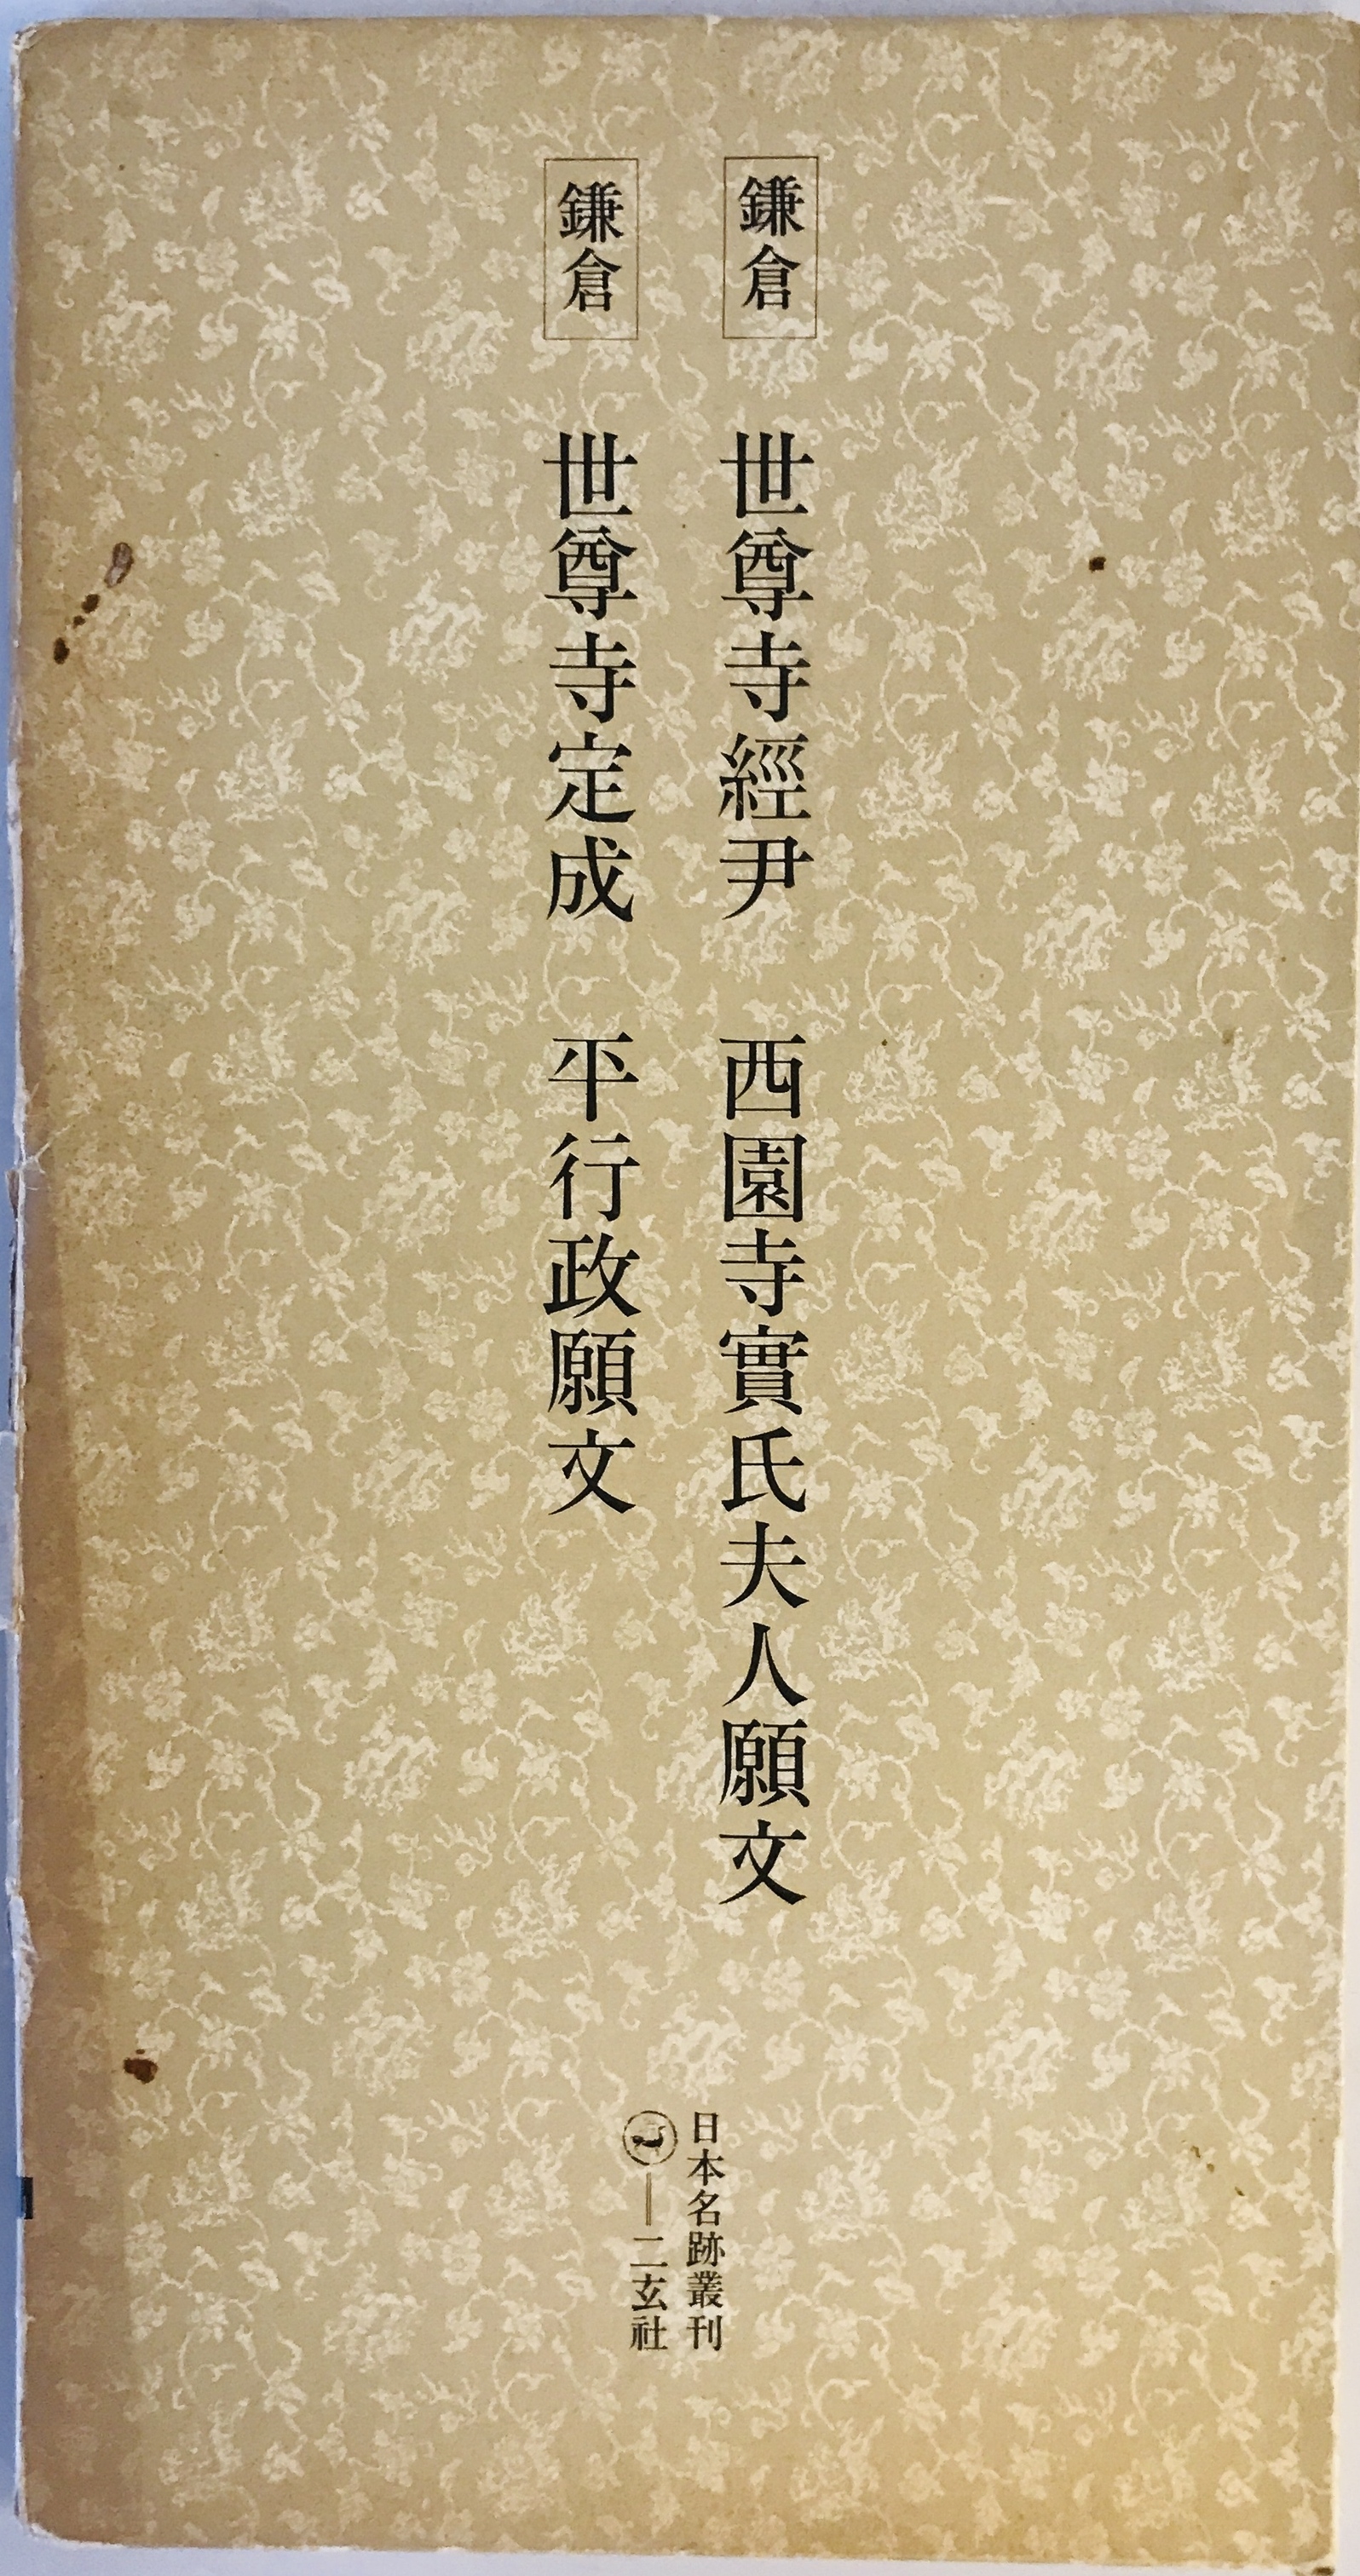 鎌倉 世尊寺經尹 西園寺實氏夫人願文
鎌倉 世尊寺定成 平行政願文
日本名跡叢刊
二玄社